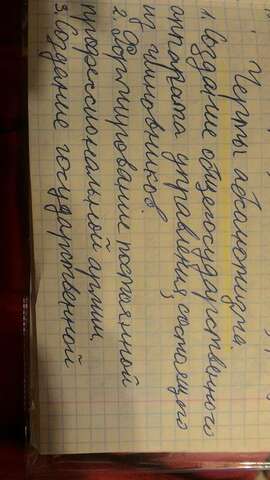 Черты абсолютизма.
1. Создание общегосударственного
аппарата управления, состоящего
из чиновников.
2. Формирование постоянной
профессиональной армии.
3. Создание государственной